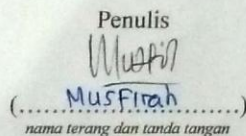 Penulis
(........Musfirah........)
nama terang dan tanda tangan